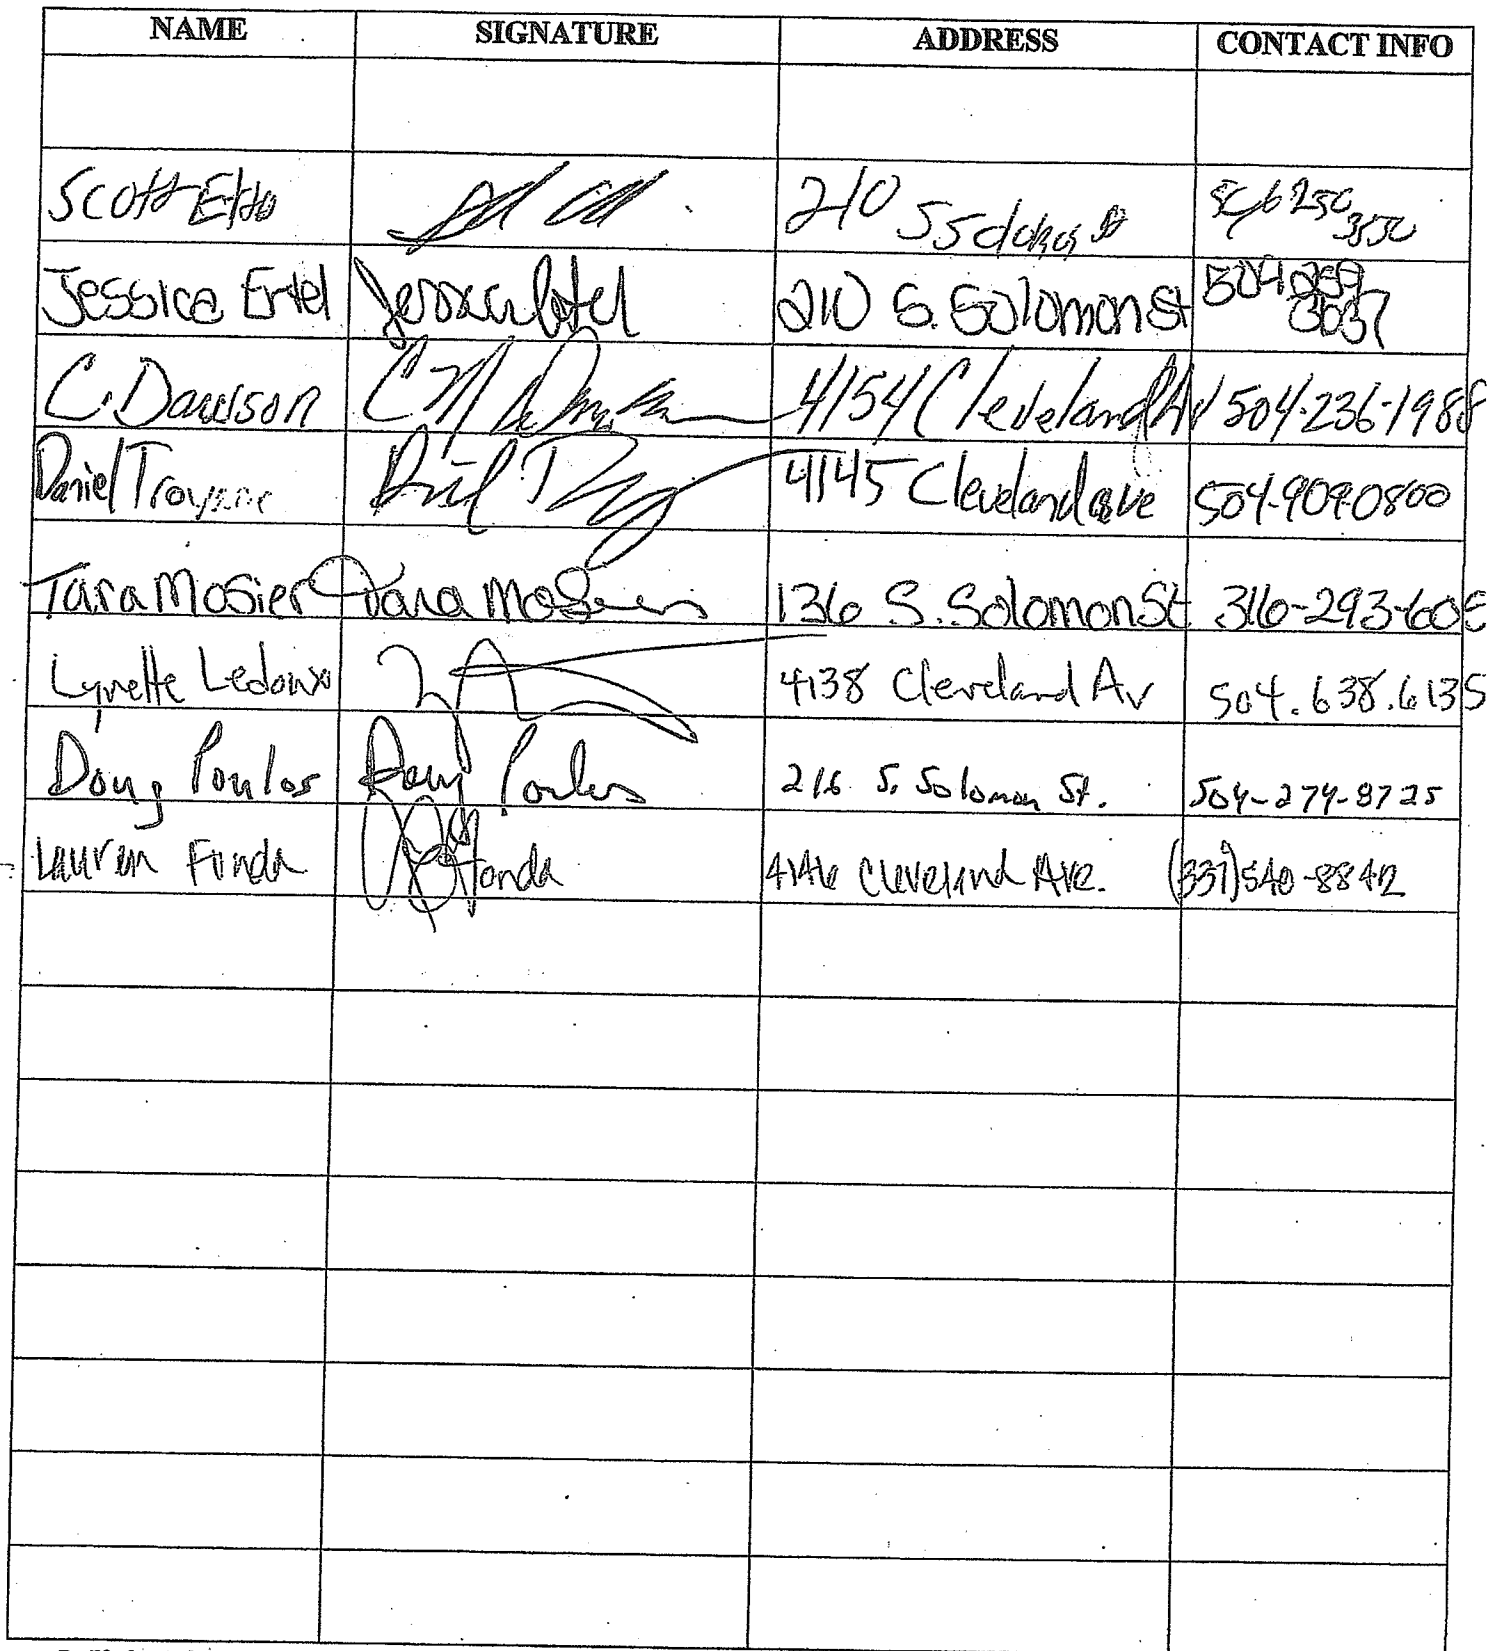 NAME SIGNATURE ADDRESS CONTACT INFO
Scott 210 S
Jessica Ertel Jessica Ertel 210 S. Solomon St 504 259 3037
C. Dawson 4154 Cleveland Av 504-236-1988
Daniel 4145 Cleveland ave 504-909-0800
Tara Mosier Tara Mosier 136 S. Solomon St 316-293-605
Lynette Ledoux 4138 Cleveland Av 504.638.6135
Doug Poulos Doug Poulos 216 S. Solomon St. 504-274-8725
Lauren Fonda Fonda 4146 Cleveland Ave. (337)540-8842